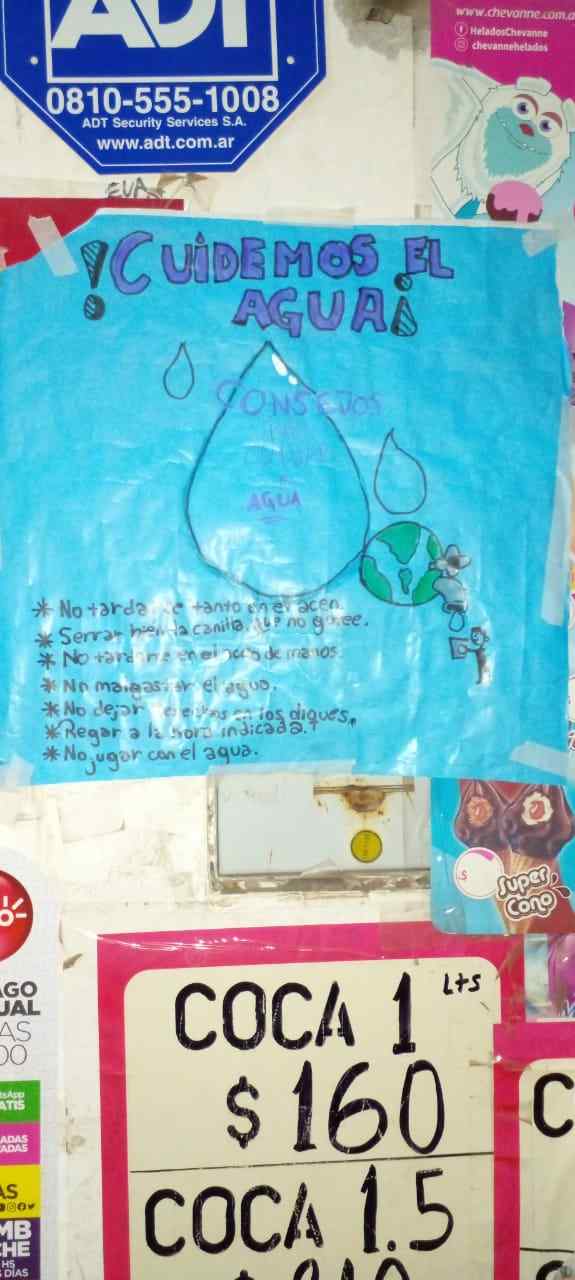 ADT
0810-555-1008
ADT Security Services S.A.
www.adt.com.ar
www.chevanne.com.a
HeladosChevanne
chevannehelados
EVA
!CUIDEMOS EL
AGUA¡
CONSEJOS
AGUA
* No tardarse tanto en el
* Serrar bien la canilla, que no gotee.
* No tardarse en el de manos.
* No malgastar el agua.
* No dejar en los diques.
* Regar a la hora indicada.
* No jugar con el agua.
Super
Cono
$
AGO
UAL
AS
00
tsApp
ATIS
ADAS
ADAS
AS
MB
CHE
HS
S DÍAS
COCA 1 Lts
$160
COCA 1.5
C